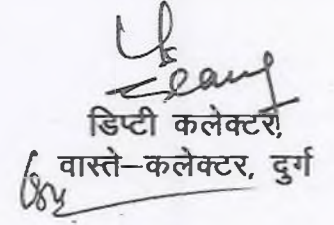 डिप्टी कलेक्टर,
वास्ते–कलेक्टर, दुर्ग